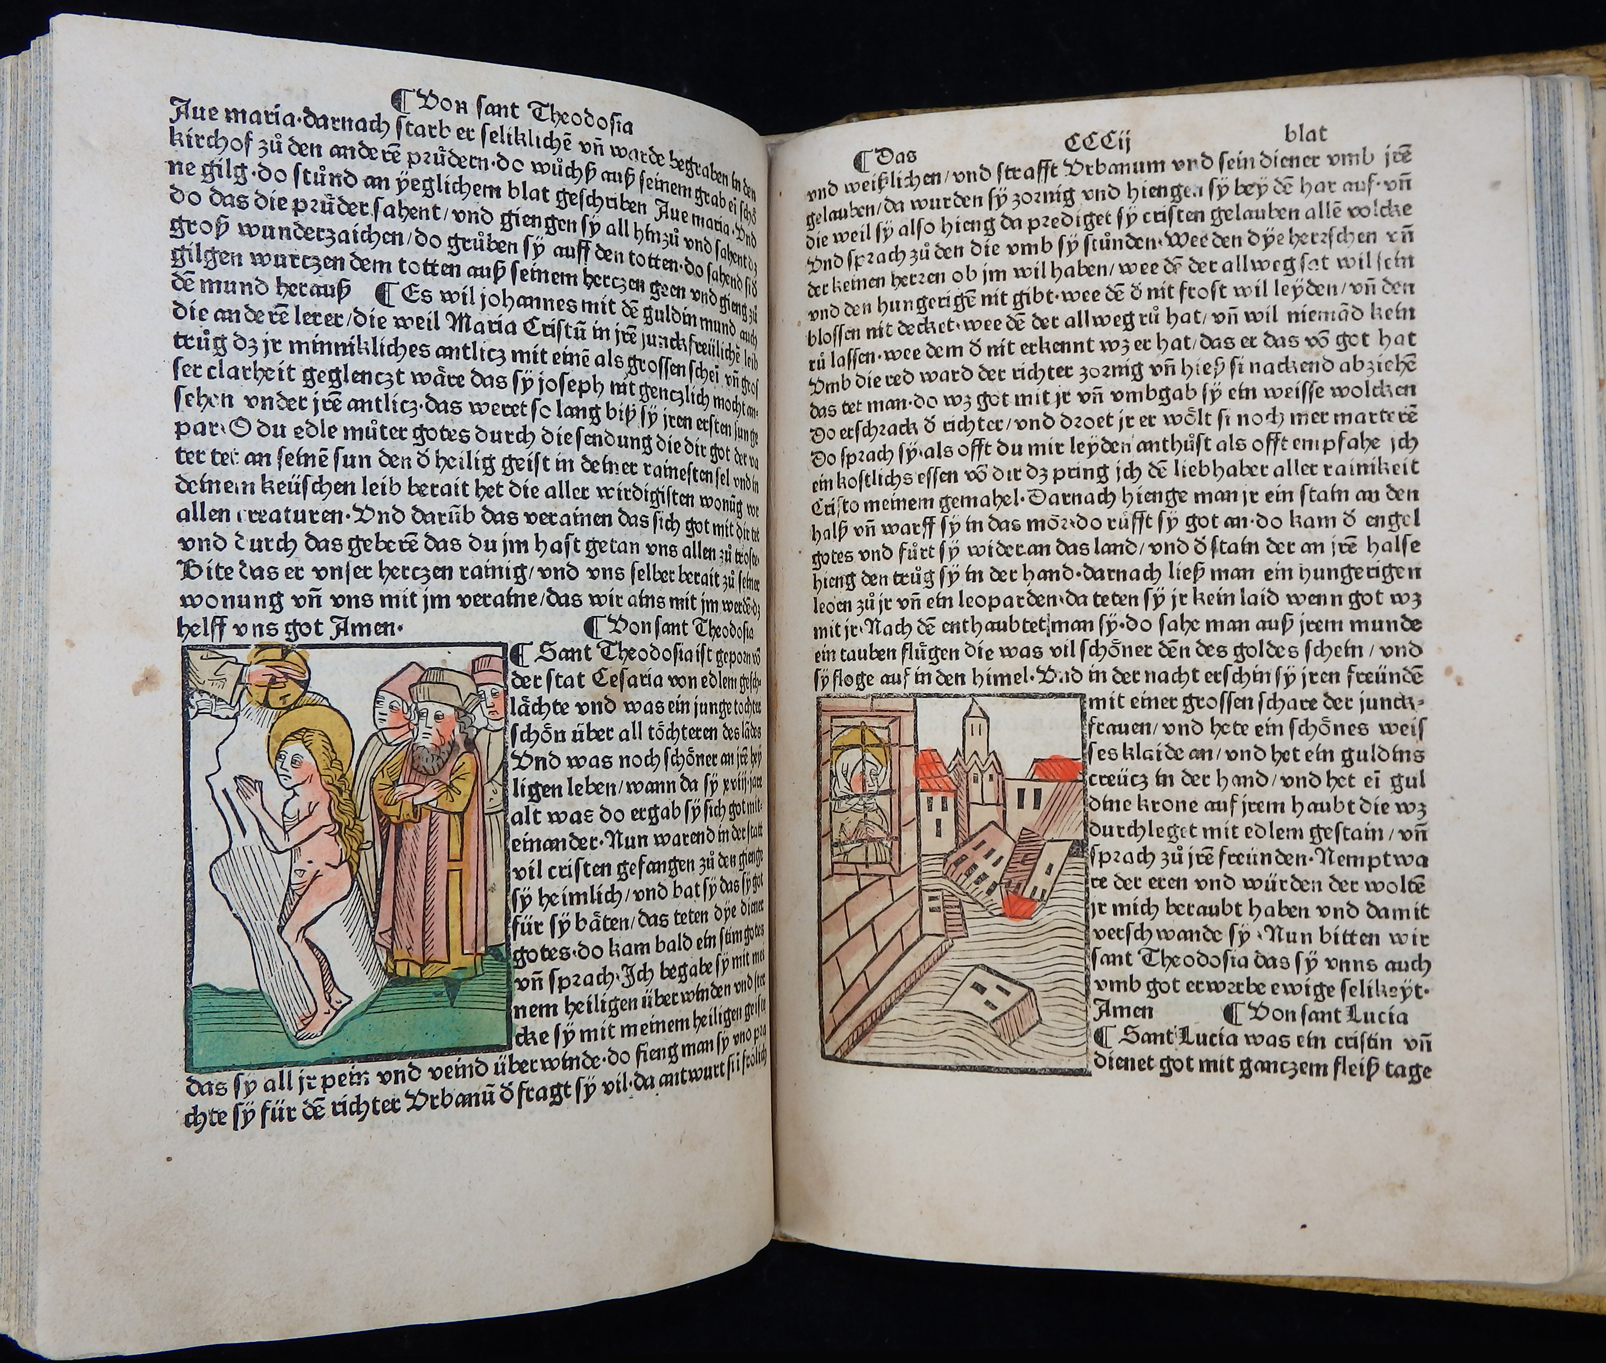 ¶ Von sant Theodosia
Aue maria·darnach starb er seliklichē vn̄ warde begraben in den
kirchof zů den anderē průdern·do wůchß auß seinem grab ei schȫ
ne gilg·do stůnd an ÿeglichem blat geschriben Aue maria·Vnd
do das die průder sahent/vnd giengen sÿ all hinzů vnd sahent dz
groß wunderzaichen/do grůben sÿ auff den totten·do sahend sÿ d
gilgen wurtzen dem totten auß seinem herczen gien vnd gieng zů
dē mund herauß ¶ Es wil johannes mit dē guldin mund auch
die anderē lerer/die weil Maria Cristū in jrē junckfreülichē leib
trůg dz jr minnikliches antlicz mit einē als grossen schei vn̄ gros
ser clarheit geglenczt wåre das sÿ joseph nit genczlich mocht an-
sehen vnder jrē antlicz·das weret so lang biß sÿ jren ersten junge
par·O du edle můter gotes durch die sendung die dir got der va
ter tet an seinē sun den d heilig geist in deiner rainesten sel vnd in
deinem keüschen leib berait het die aller wirdigisten wonūg vor
allen creaturen·Vnd darūb das verainen das sich got mit dir tet
vnd durch das geberē das du jm hast getan vns allen zů troste·
Bite das er vnser herczen rainig/vnd vns selber berait zů seiner
wonung vn̄ vns mit jm veraine/das wir ains mit jm werdē·dz
helff vns got Amen· ¶ Von sant Theodosia
¶ Sant Theodosia ist geporn vō
der stat Cesaria von edlem gesch-
låchte vnd was ein junge tochter
schȯn über all tȯchteren des lādes
Vnd was noch schȯner an jrē heÿ
ligen leben/wann da sÿ xviij·jare
alt was do ergab sÿ sich got mit-
einander·Nun warend in der statt
vil cristen gefangen zů den gienge
sÿ heimlich/vnd bat sÿ das sÿ got
für sÿ båten/das teten dÿe diener
gotes·do kam bald ein stim gotes
vn̄ sprach·Ich begabe sÿ mit mei
nem heiligen überwinden vnd ster
cke sÿ mit meinem heiligen geist
das sÿ all jr pein vnd veind überwinde·do fieng man sÿ vnd pra
chte sÿ für dē richter Vrbanū d fragt sÿ vil·da antwurt si frȯlich
¶ Das CCCij blat
vnd weißlichen/vnd strafft Vrbanum vnd sein diener vmb jrē
gelauben/da wurden sÿ zornig vnd hiengen sÿ beÿ dē har auf·vn̄
die weil sÿ also hieng da prediget sÿ cristen gelauben allē volcke
Vnd sprach zů den die vmb sÿ stůnden·Wee den dÿe herrschen vn̄
der keinen herren ob jm wil haben/wee dē der allweg sat wil sein
vnd den hungerigē nit gibt·wee dē d nit frost wil leÿden/vn̄ den
blossen nit decket·wee dē der allweg rů hat/vn̄ wil niemād kein
rů lassen·wee dem d nit erkennt wz er hat/das er das vō got hat
Vmb die red ward der richter zornig vn̄ hieß si nackend abziehē
das tet man·do wz got mit jr vn̄ vmbgab sÿ ein weisse wolcken
Do erschrack d richter/vnd droet jr er wȯlt si noch mer marterē
Do sprach sÿ·als offt du mir leÿden anthůst als offt empfahe jch
ein kostlichs essen vō dir dz pring jch dē liebhaber aller rainikeit
Cristo meinem gemahel·Darnach hienge man jr ein stain an den
halß vn̄ warff sÿ in das mȯr·do růfft sÿ got an·do kam d engel
gotes vnd fůrt sÿ wider an das land/vnd d stain der an jrē halse
hieng den trůg sÿ in der hand·darnach ließ man ein hungerigen
leoen zů jr vn̄ ein leoparden·da teten sÿ jr kein laid wenn got wz
mit jr·Nach dē enthaubtet man sÿ·do sahe man auß jrem munde
ein tauben flůgen die was vil schȯner dēn des goldes schein/vnd
sÿ floge auf in den himel·Vnd in der nacht erschin sÿ jren freündē
mit einer grossen schare der junck-
frauen/vnd hete ein schȯnes weis
ses klaide an/vnd het ein guldins
creücz in der hand/vnd het ei gul
dine krone auf jrem haubt die wz
durchleget mit edlem gestain/vn̄
sprach zů jrē freünden·Nempt wa
re der eren vnd würden der woltē
jr mich beraubt haben vnd damit
verschwande sÿ·Nun bitten wir
sant Theodosia das sÿ vnns auch
vmb got erwerbe ewige selikeÿt·
Amen ¶ Von sant Lucia
¶ Sant Lucia was ein cristin vn̄
dienet got mit ganczem fleiß tage